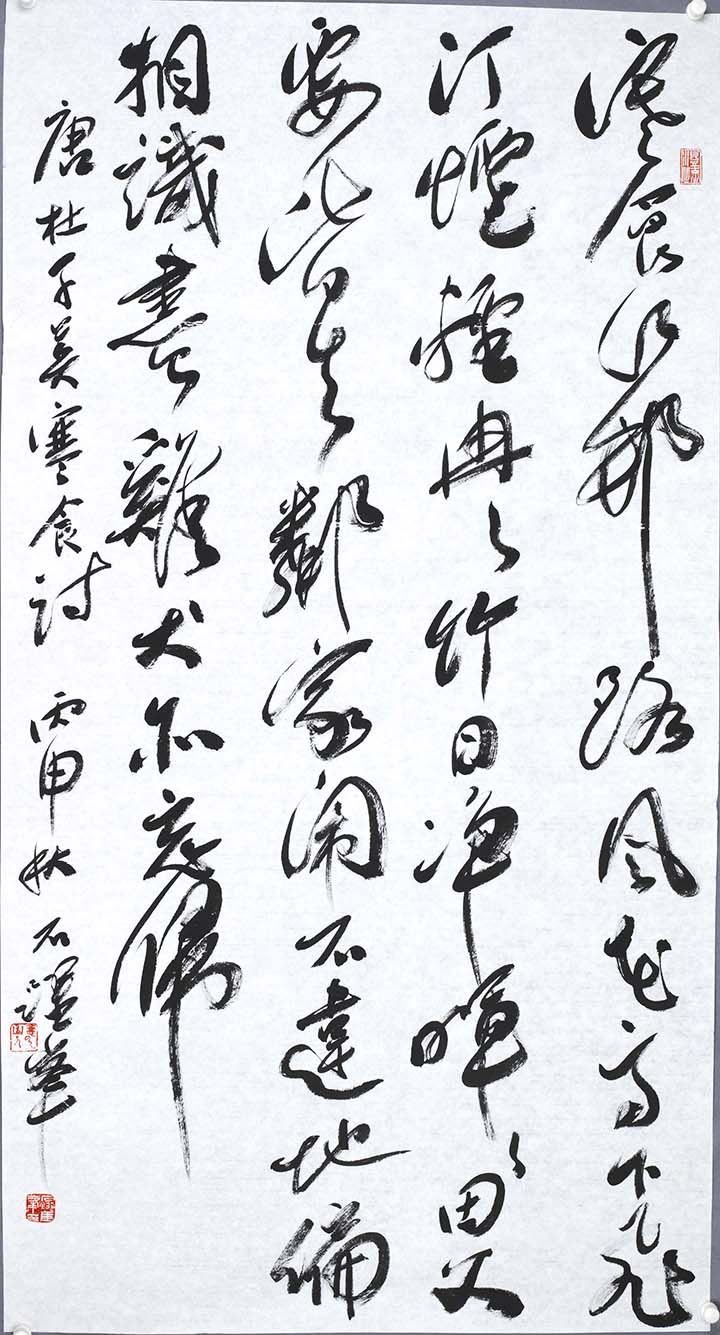 寒食江邨路風花高下飛
汀煙輕冉々竹日淨暉々田父
要皆去鄰家鬧不違地偏
相識盡雞犬亦忘歸
唐杜子美寒食詩 丙申秋 石